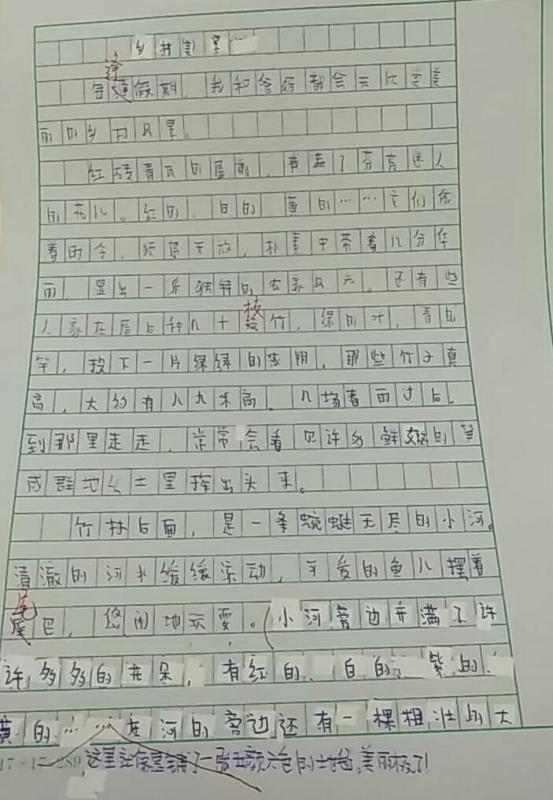 乡村美景
每逢假期,我和爸爸都会去
丽的乡村风景。
红砖青瓦的屋前,种满了芬芳迷人
的花儿。红的、白的、黄的……它们依
着时令,顺序开放,朴素中带着几分华
丽,显出一派独特的农家风光。还有些
人家在屋后种几十枝竹,绿的叶,青的
竿,投下一片绿绿的浓阴。那些竹子真
高,大约有八九米高。几场春雨过后,
到那里走走,常常会看见许多鲜嫩的笋
成群地从土里探出头来。
竹林后面,是一条蜿蜒无尽的小河。
清澈的河水缓缓流动,可爱的鱼儿摆着
尾巴,悠闲地玩耍。小河旁边开满了许
许多多的花朵,有红的、白的、紫的、
黄的……在河的旁边还有一棵粗壮的大
这里
一张五颜六色的
美丽极了!